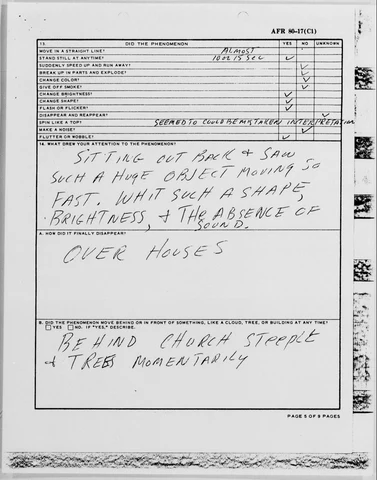 AFR 80-17(C1)
13. DID THE PHENOMENON YES NO UNKNOWN
MOVE IN A STRAIGHT LINE? ALMOST
STAND STILL AT ANYTIME? 10 OR 15 SEC ✓
SUDDENLY SPEED UP AND RUN AWAY? ✓
BREAK UP IN PARTS AND EXPLODE? ✓
CHANGE COLOR? ✓
GIVE OFF SMOKE? ✓
CHANGE BRIGHTNESS? ✓
CHANGE SHAPE? ✓
FLASH OR FLICKER? ✓
DISAPPEAR AND REAPPEAR? ✓
SPIN LIKE A TOP? SEEMED TO COULD BE MISTAKEN INTERPRETATION
MAKE A NOISE? ✓
FLUTTER OR WOBBLE? ✓
14. WHAT DREW YOUR ATTENTION TO THE PHENOMENON?
SITTING OUT BACK & SAW
SUCH A HUGE OBJECT MOVING SO
FAST. WHIT SUCH A SHAPE,
BRIGHTNESS, & THE ABSENCE OF
SOUND.
A. HOW DID IT FINALLY DISAPPEAR?
OVER HOUSES
B. DID THE PHENOMENON MOVE BEHIND OR IN FRONT OF SOMETHING, LIKE A CLOUD, TREE, OR BUILDING AT ANY TIME?
YES NO. IF "YES," DESCRIBE.
BEHIND CHURCH STEEPLE
& TREES MOMENTARILY
PAGE 5 OF 9 PAGES